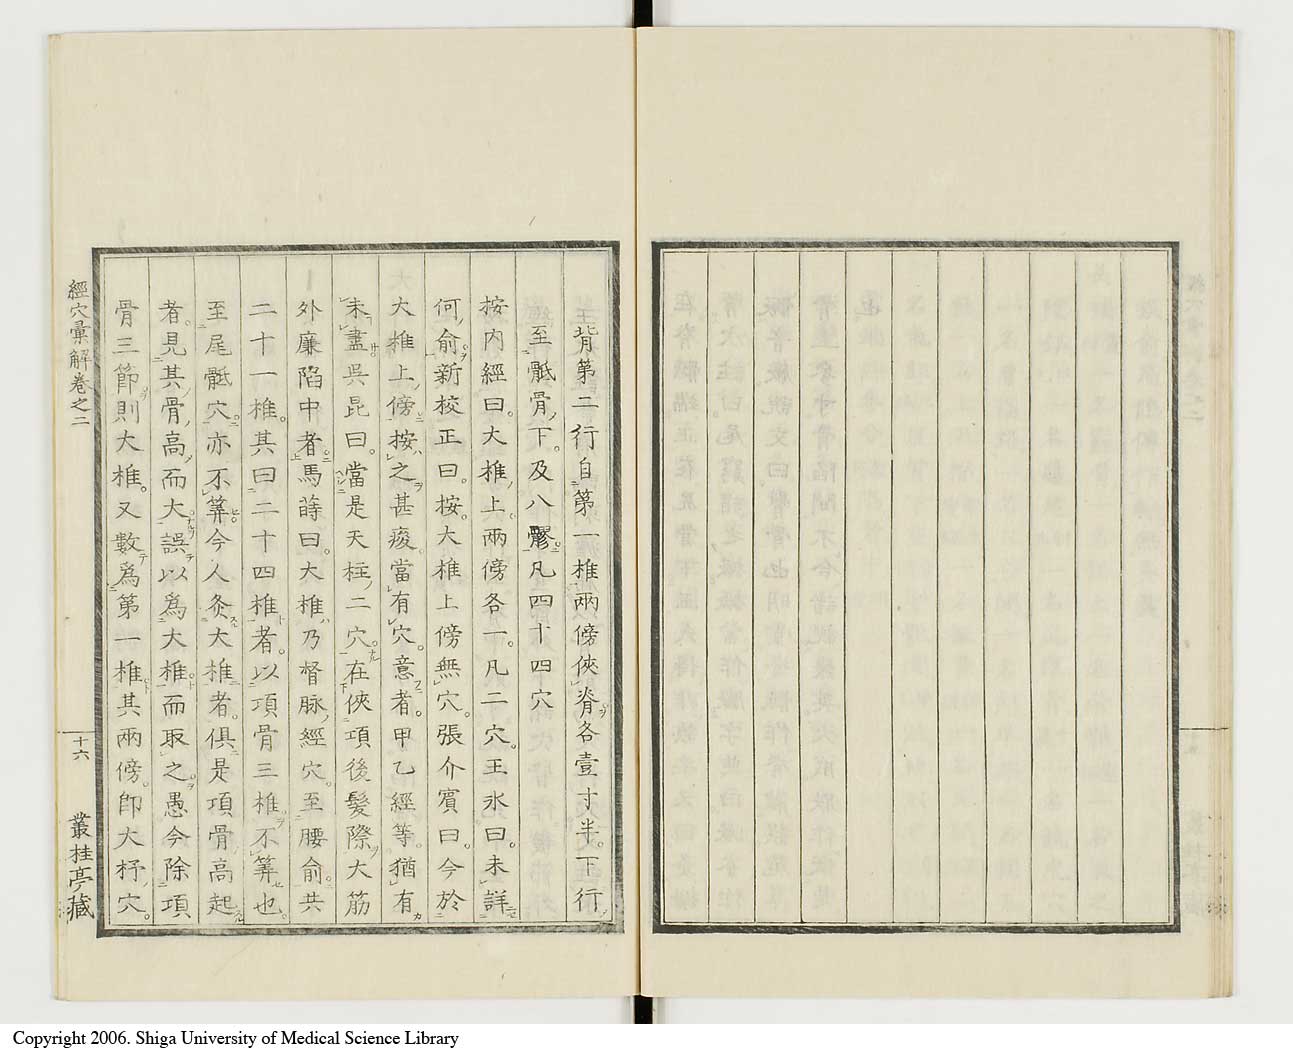 背第二行自第一椎兩傍俠脊各壹寸半。下行
至骶骨下。及八髎凡四十四穴
按内經曰。大椎上兩傍各一。凡二穴。王氷曰。未詳
何俞新校正曰。按。大椎上傍無穴。張介賓曰。今於
大椎上傍按之甚痠。當有穴。意者。甲乙經等。猶有
未盡。吳昆曰。當是天柱二穴。在俠項後髮際。大筋
外廉陷中者。馬蒔曰。大椎乃督脉經穴。至腰俞。共
二十一椎。其曰二十四椎者。以項骨三椎。不筭也。
至尾骶穴。亦不筭。今人灸大椎者。俱是項骨高起
者。見其骨高而大。誤以為大椎而取之。愚今除項
骨三節。則大椎。又數為第一椎。其兩傍。卽大杼穴。
經穴彙解卷之二
十六
叢桂亭藏
Copyright 2006. Shiga University of Medical Science Library